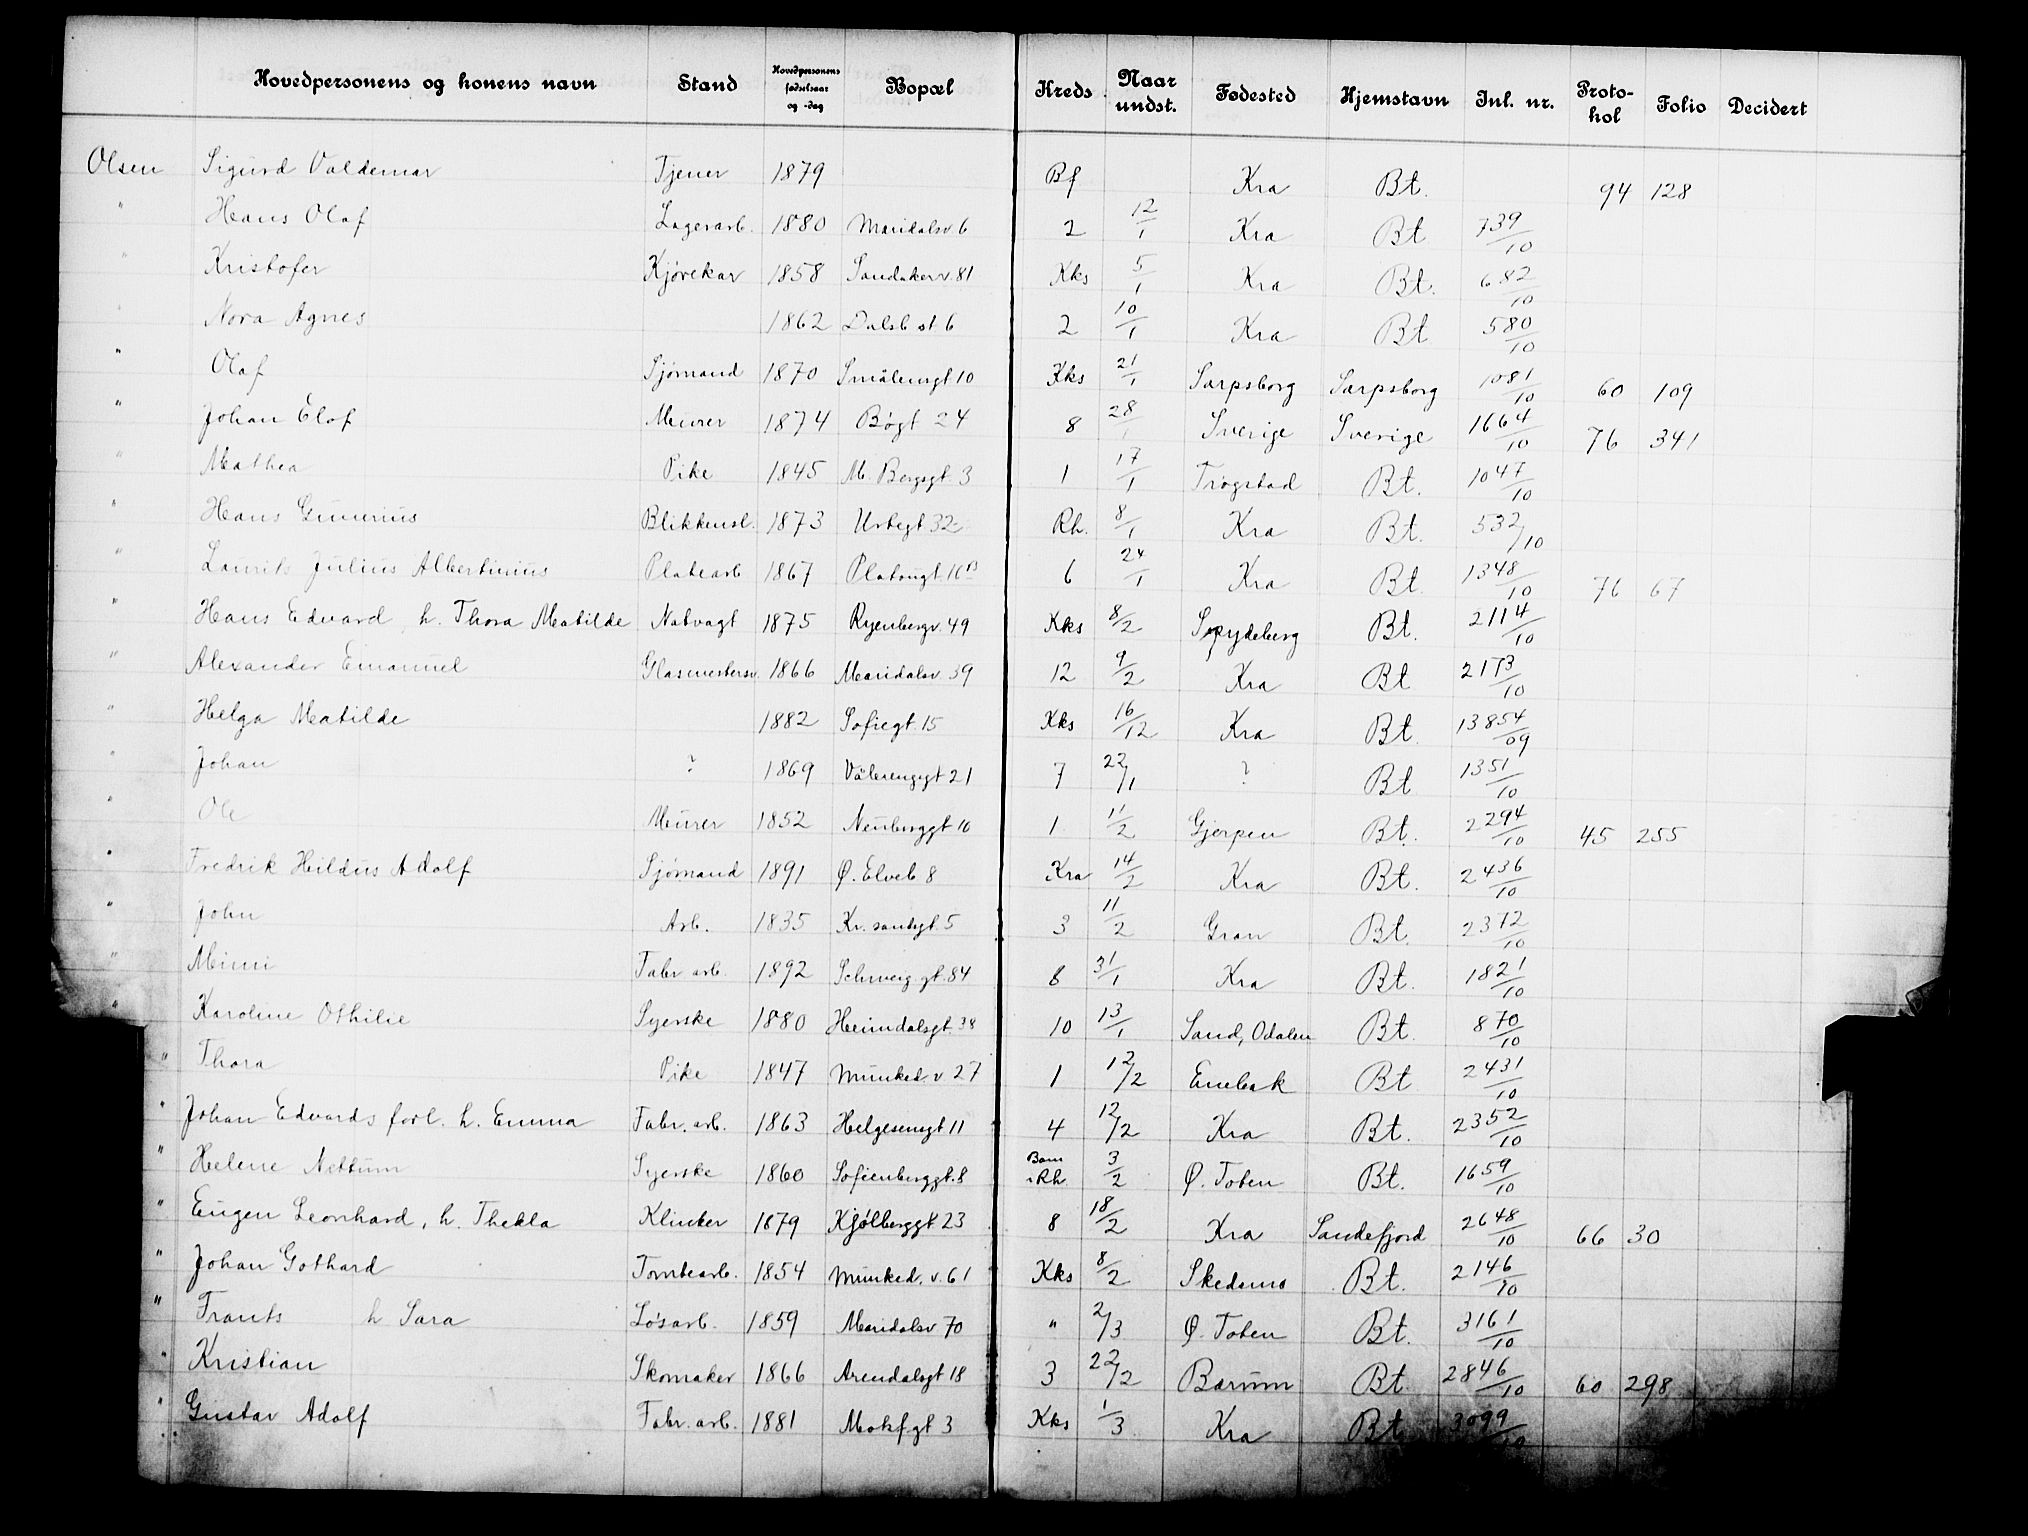 Hovedpersonens og konens navn | Stand | Hovedpersonens fødselsaar og -dag | Bopæl | Kreds | Naar undst. | Fødested | Hjemstavn | Inl. nr. | Protokol | Folio | Decidert
Olsen | Sigurd Valdemar | Tjener | 1879 | | Bf | | Kra | Bt. | | 94 | 128
" | Hans Olaf | Lagerarb. | 1880 | Maridalsv 6 | 2 | 12/1 | Kra | Bt | 739/10
" | Kristofer | Kjørekar | 1858 | Sandakerv. 81 | Kks | 5/1 | Kra | Bt. | 682/10
" | Nora Agnes | | 1862 | Dalsb st 6 | 2 | 10/1 | Kra | Bt | 580/10
" | Olaf | Sjømand | 1870 | Smålensgt 10 | Kks | 21/1 | Sarpsborg | Sarpsborg | 1081/10 | 60 | 109
" | Johan Elof | Murer | 1874 | Bøgt 24 | 8 | 28/1 | Sverige | Sverige | 1664/10 | 76 | 341
" | Mathea | Pike | 1845 | M. Bergsgt. 3 | 1 | 17/1 | Trøgstad | Bt. | 1047/10
" | Hans Gunerius | Blikkensl. | 1873 | Urtegt 32 | Rh. | 8/1 | Kra | Bt. | 532/10
" | Laurits Julius Albertinius | Platearb | 1867 | Platougt. 16 B | 6 | 24/1 | Kra | Bt. | 1348/10 | 76 | 67
" | Hans Edvard h. Thora Matilde | Natvagt | 1875 | Ryenbergv. 49 | Kks | 8/2 | Spydeberg | Bt. | 2114/10
" | Alexander Emanuel | Glasmestersv. | 1866 | Maridalsv 39 | 12 | 9/2 | Kra | Bt | 2173/10
" | Helga Matilde | | 1882 | Sofiegt. 15 | Kks | 16/12 | Kra | Bt. | 13854/09
" | Johan | ? | 1869 | Vålerenggt 21 | 7 | 22/1 | ? | Bt | 1351/10
" | Ole | Murer | 1852 | Neuberggt 16 | 1 | 1/2 | Gjerpen | Bt. | 2294/10 | 45 | 255
" | Fredrik Hildus Adolf | Sjømand | 1891 | Ø. Elveb 8 | Kra | 14/2 | Kra | Bt. | 2436/10
" | John | Arb. | 1835 | Kr. sandsgt. 5 | 3 | 11/2 | Gran | Bt. | 2372/10
" | Mimi | Fabr. arb. | 1892 | Schweig. gt. 84 | 6 | 31/1 | Kra | Bt. | 1821/10
" | Karoline Othilie | Syerske | 1880 | Heimdalsgt. 38 | 10 | 13/1 | Sand, Odalen | Bt. | 870/10
" | Thora | Pike | 1847 | Munked. v 27 | 1 | 12/2 | Enebak | Bt | 2431/10
" | Johan Edvards forl. h. Emma | Fabr. arb. | 1863 | Helgesensgt 11 | 4 | 12/2 | Kra | Bt. | 2352/10
" | Helene Nettum | Syerske | 1860 | Sofienberggt. 8 | Barn i Rh | 3/2 | Ø. Toten | Bt. | 1659/10
" | Eugen Leonhard, h. Thekla | Klinker | 1879 | Kjølberggt 23 | 8 | 18/2 | Kra | Sandefjord | 2648/10 | 66 | 30
" | Johan Gothard | Tomtearb. | 1854 | Munked. v. 61 | Kks | 8/2 | Skedsmo | Bt. | 2146/10
" | Frants h Sara | Løsarb. | 1859 | Maridalsv 70 | " | 2/3 | Ø. Toten | Bt. | 3161/10
" | Kristian | Skomaker | 1866 | Arendalsgt 18 | 3 | 22/2 | Bærum | Bt. | 2846/10 | 60 | 298
" | Gustav Adolf | Fabr. arb. | 1881 | Motzfgt 3 | Kks | 1/3 | Kra | Bt | 3099/10